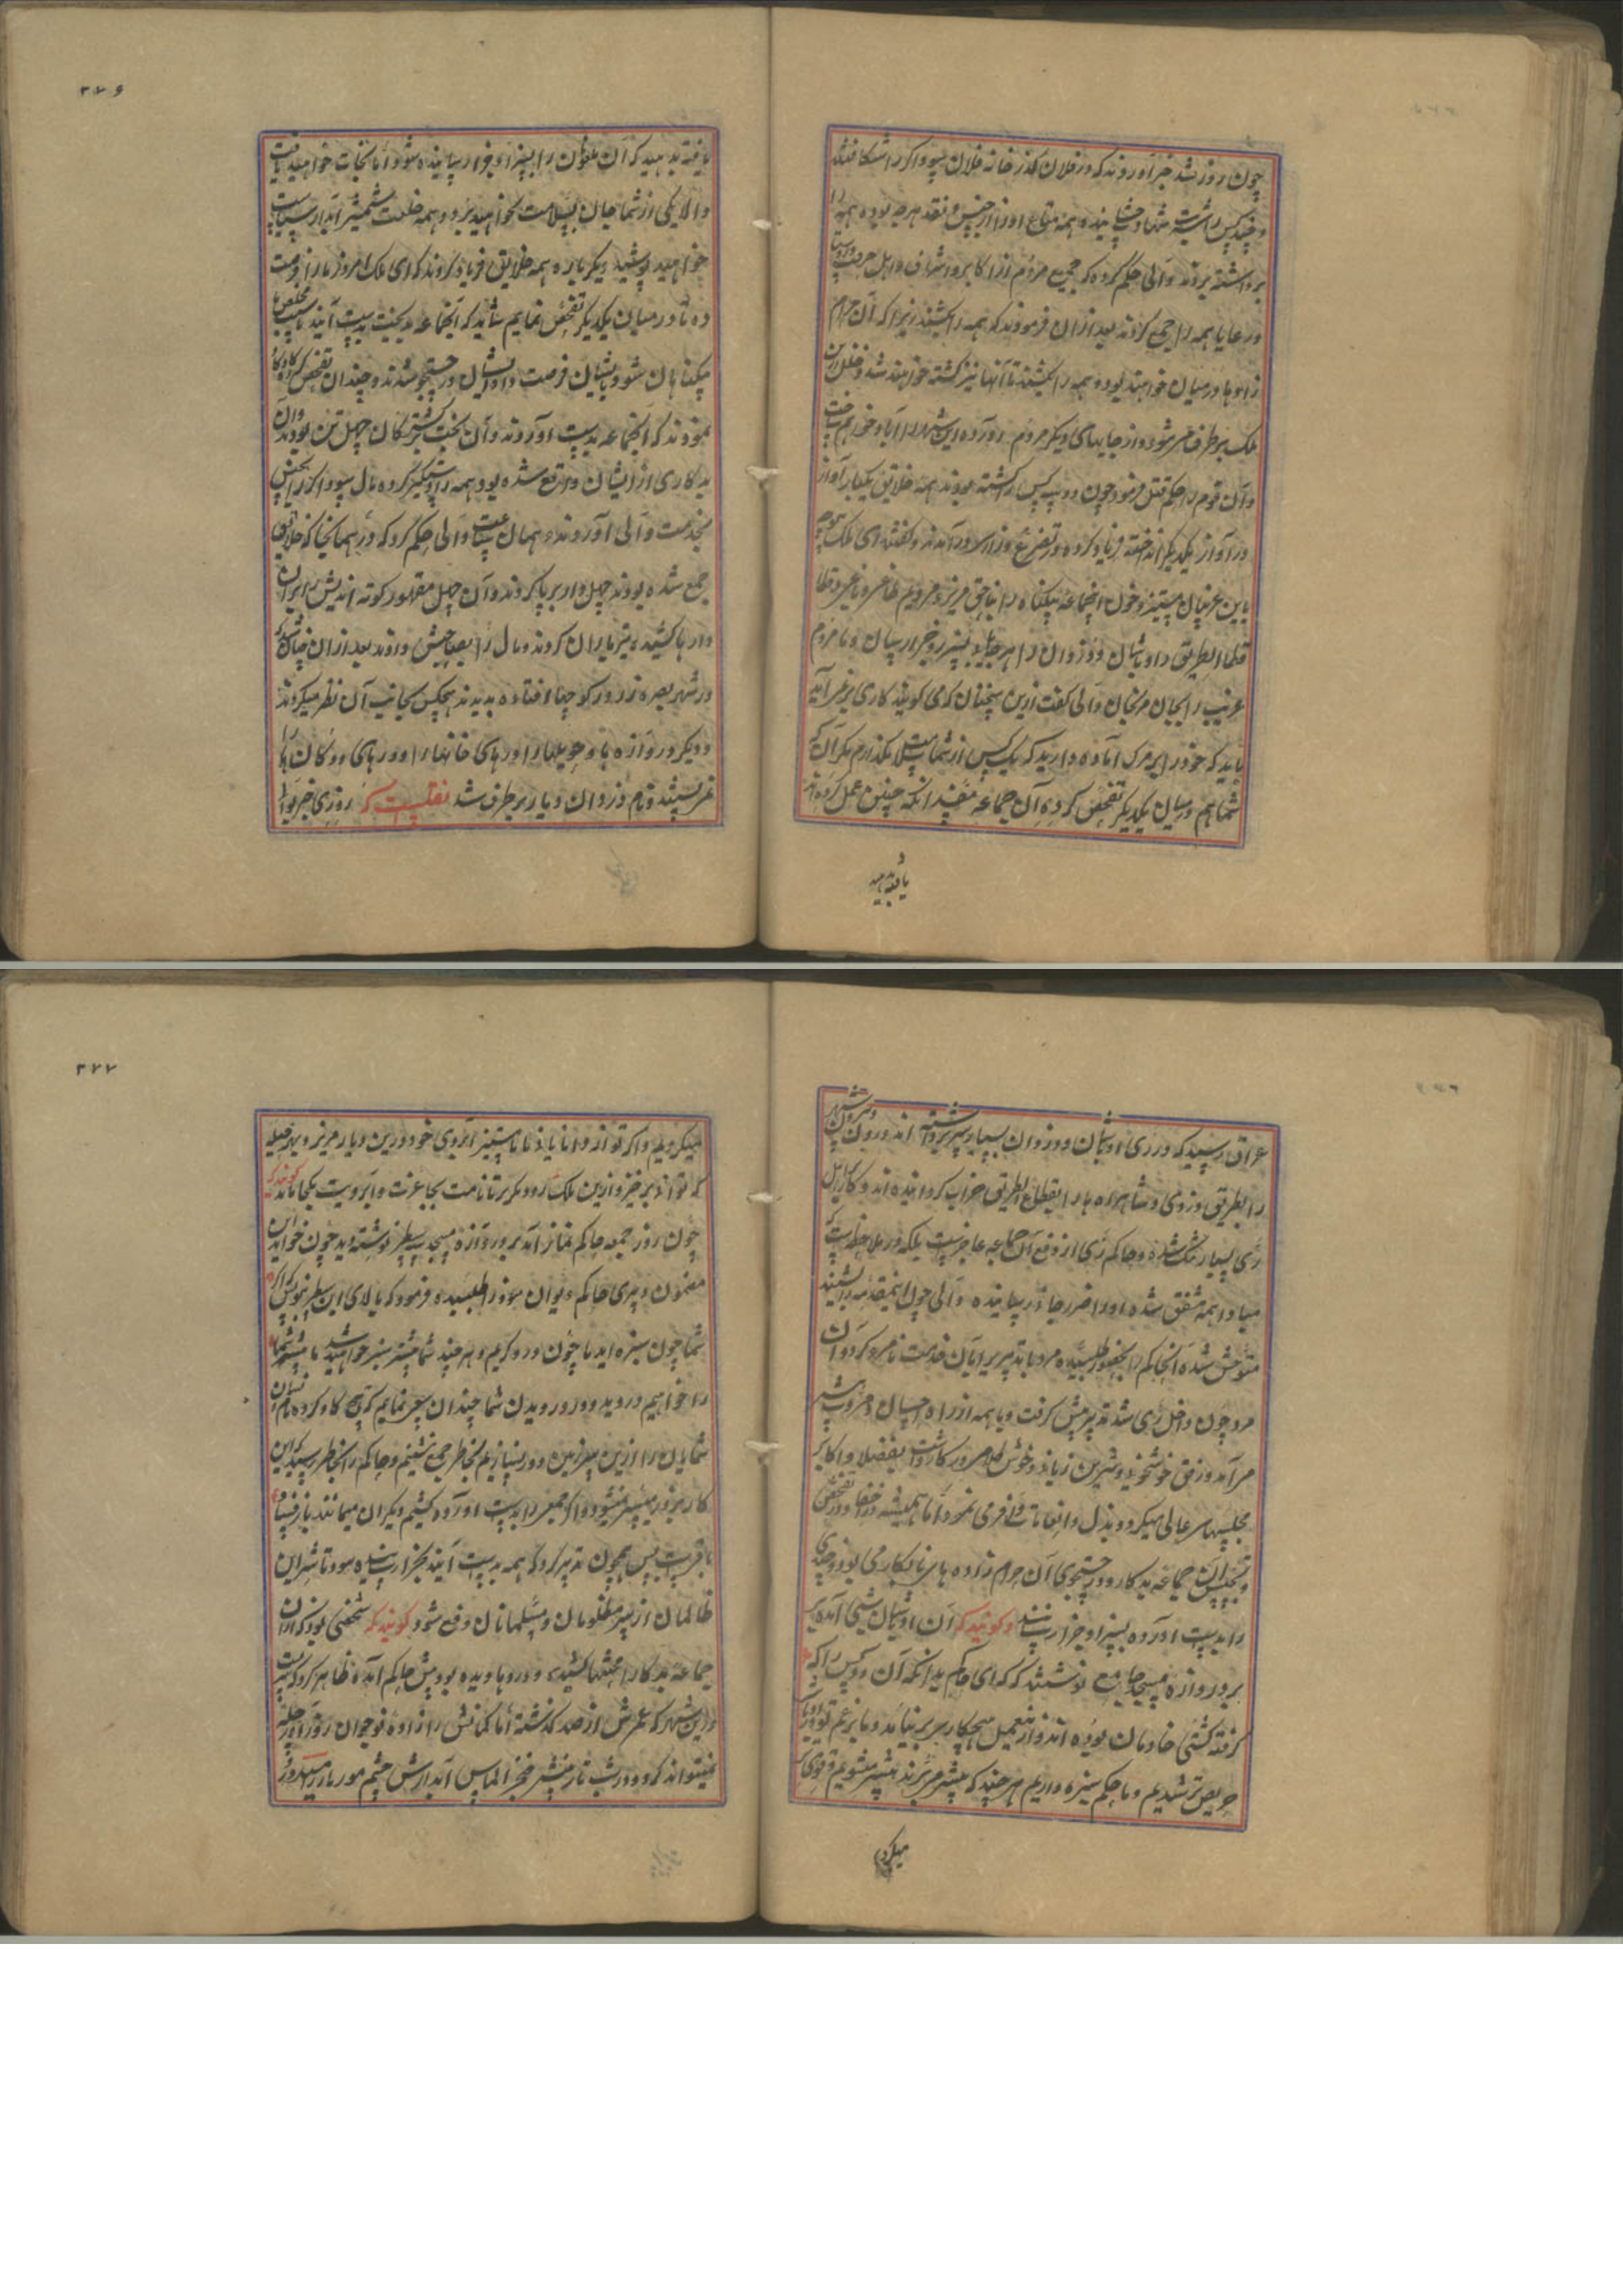 چون روز شد خبر آوردند که در فلان گذر خانه فلان سوداگر را شکافتند
و چند کس را شربت شهادت چشانیده همه متاع او را از جنس و نقد هر چه بوده همه را
برداشته بردند والی حکم کرده که جمیع مردم از اکابر و اشراف و اهل حرفت
و رعایا همه را جمع کردند بعد از ان فرمودند که همه را بکشند زیرا که آن حرام
زادها در میان خواهند بود و همه را بکشند تا آنها نیز کشته خواهند شد و خلل ازین
ملک بر طرف میشود و از جایهای دیگر مردم آورده این شهر را آباد خواهم ساخت
و آن قوم را حکم قتل فرمود چون دو سه کس را کشته بودند همه خلایق یکبار آواز
در آواز یکدیگر انداخته فریاد کرده و تضرع و زاری در آمدند و گفتند ای ملک
باین غریبان مستیز و خون اینجماعه بیگناه را بناحق مریز
قطاع الطریق و اوباشان و دزدان را هر جا بیابی بسزا و جزا رسان و ما مردم
غریب را بجان مرنجان والی گفت ازین سخنان که می گویید کاری بر نمی آید
باید که خود را بر مرگ آماده دارید که یک کس از شما سلامت نگذارم مگر آن که
شما هم در میان یکدیگر تفحص کرده آن جماعه مفسد را که چنین عمل کرده اند
یافته بدهید
۳۷۶
یافته بدهید که آن ملعونان را بسزا و جزا رسانیده شود و انجات خواهید یافت
والا یکی از شما جان بسلامت نخواهید برد و همه خلعت شمشیر آبدار سیاست
خواهید پوشید دیگر باره همه خلایق فریاد کردند که ای ملک امروز ما را فرصت
ده تا در میان یکدیگر تفحص نمایم شاید که اینجماعه بدبخت بدست آیند تا سبب مخلص
بیگناهان شود باشان فرصت داد و ایشان در جستجو شدند و چندان تفحص
نمودند که اینجماعه بدست آوردند و آن بخت برگشتگان چهل تن بودند و آن
بدکاری از ایشان واقع شده بود همه را دستگیر کرده مال سوداگر را بجنس
بخدمت والی آوردند و همان ساعت والی حکم کرد که در همانجا که خلایق
جمع شده بودند چهل دار بر پا کردند و آن چهل مقهور کوته اندیش را بران
دار ها کشیده تیر باران کردند و مال را بصاحبش دادند بعد از ان چنان شد که
در شهر بصره زر در کوچها افتاده بدیدند هیچکس بجانب آن نظر نمیکردند
و دیگر دروازه ها و حویلیها را و درهای خانها را و درهای دوکان ها را
نمی بستند و نام دزد ان دیار بر طرف شد نقلست که روزی خبر بوالی
عراق رسید که در ری اوباشان و دزدان بسیار سر برداشته اند درون و بیرون شهر
را بطریق دزدی و شاهراه ها را بقطاع الطریق خراب گردانیده اند و کار بر اهل
ری بسیار تنگ شده و حاکم ری از دفع آن جماعه عاجز است بلکه در ملاحظه است که
مبادا همه متفق شده او را ضرر جانی رسانیده والی چون اینمقدمه را شنید
متوحش شده آنحاکم را بحضور طلبیده مرد با تدبیر برای آن خدمت نامزد کرد و آن
مرد چون داخل ری شد تدبیر پیش گرفت و با همه از راه احسان و مروت پیش
مرآمد و رفق و خوشخوئی و شیرین زبانی و خوش کلامی در کار داشت بفضلا و اکابر
مجلسهای عالی میکرد و بذل و انعامات وافر می نمود و اما همیشه در خفا در تفحص
و تجسس آن جماعه بدکار و در جستجوی آن حرام زاده های نابکار می بود و چندی
را بدست آورده بسزا و جزا رسانید و گویند که آن اوباشان شبی آمده
بر دروازه مسجد جامع نوشتند که ای حاکم بدانکه آن دو کس را که
گرفته کشتی خادمان بوده اند و از تعمیل هیچکار بر نیامد و ما بر غم تو
حریص تر شدیم و ما حکم سبزه داریم هر چند که بیشتر میبرند بیشتر میشویم و قوی تر
میگردیم
۳۷۷
میگردیم و اگر توانی و اما باید که با ما مستیز آبروی خود درین دیار مریز و بهر حیله
که توانی بر خیز و ازین ملک رو و بگریز تا نامت بجا عزت و آبرویت بجا ماند گویند که
چون روز جمعه حاکم بنماز آمد بر دروازه مسجد سطر نوشته دید چون خواند این
مضمون دید حاکم دیوان خود را طلبیده فرمود که بالای این سطر بنویس که اگر
شما چون سبزه اید ما چون درو گریم و هر چند شما بیشتر سبز خواهید شد ما بیشتر شما
را خواهیم دروید و در درویدن شما چندان سعی نمایم که هیچ گاو کرده نام و نشان
شمایان را ازین سرزمین دور بسازیم بخاطر جمع نشینم و حاکم را بخاطر رسید که این
کار بزور میسر نمیشود و اگر جمعی را بدست آورده کشیم دیگران میمانند باز فساد
باقیست پس همچون تدبیر کرد که همه بدست آیند بجزا رسانیده شود تا شر این
ظالمان از سر مظلومان و مسلمانان دفع شود گویند که شخصی بود که از آن
جماعه بدکار محنتها کشیده و دردها دیده بود پیش حاکم آمده ظاهر کرد که پیریست
درین شهر که عمرش از صد گذشته اما کمانش را زاده نوجوان روزآور چله
نمیتواند کرد و در شب تار نیشتر خنجر الماس آبدارش چشم مور و مار را میدوزد